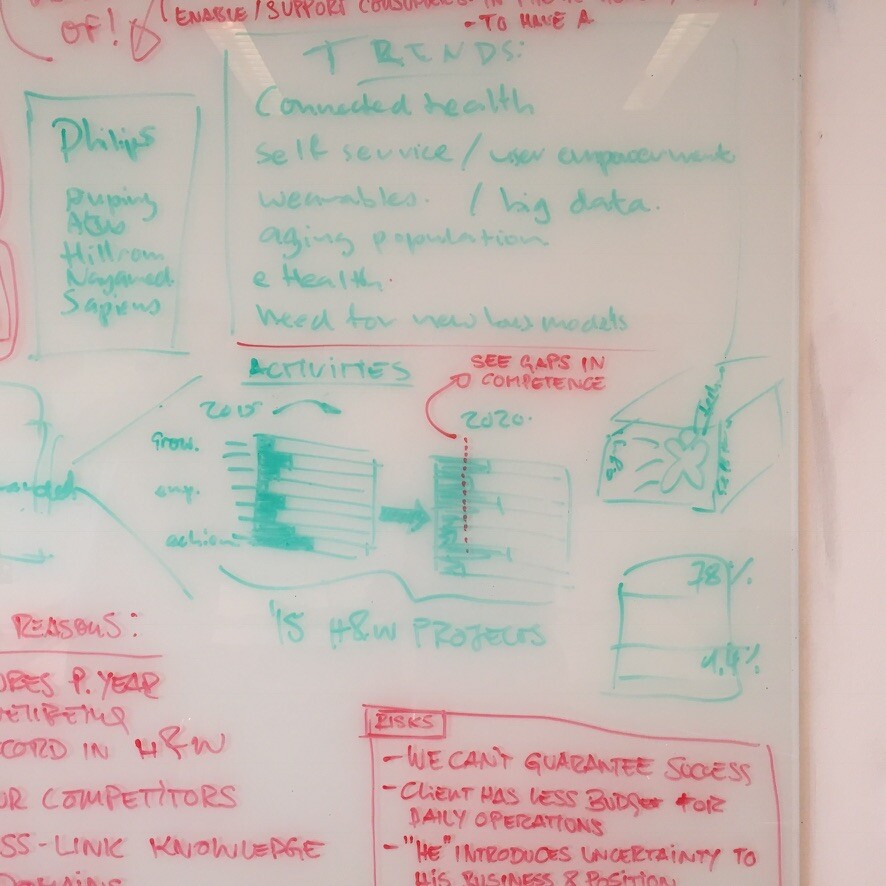 OF!
ENABLE/SUPPORT CONSUMERS IN THE
- TO HAVE A
TRENDS:
Connected health
Self service / user empowerment
wearables. / big data.
aging population
e Health.
Need for new models
Philips
Auping
Hillrom
Sapiens
ACTIVITIES
SEE GAPS IN
COMPETENCE
2015
2020.
Grow.
emp.
'15 H&W PROJECTS
78%
REASONS:
URES P. YEAR
CORD IN H&W
UR COMPETITORS
SS-LINK KNOWLEDGE
DOMAINS
RISKS
- WE CAN'T GUARANTEE SUCCESS
- CLIENT HAS LESS BUDGET FOR
DAILY OPERATIONS
- "HE" INTRODUCES UNCERTAINTY TO
HIS BUSINESS & POSITION